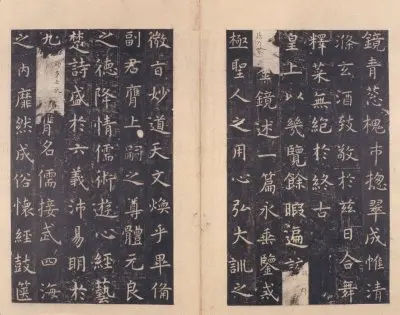 鏡青葱槐市總翠成帷清
滌玄酒致敬於茲日合舞
釋菜無絕於終古
皇上以幾覽餘暇遍該
鏡述一篇永垂鑒戒
極聖人之用心弘大訓之
微旨妙道天文煥乎畢備
副君膺上嗣之尊體元良
之德降情儒術遊心經藝
楚詩盛於六義沛易明於
九膺名儒接武四海
之內靡然成俗懷經鼓篋